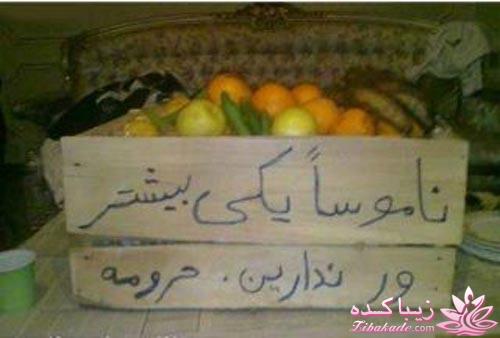 ناموساً یکی بیشتر
ور ندارین. حرومه
زیباکده
Tibakade.com